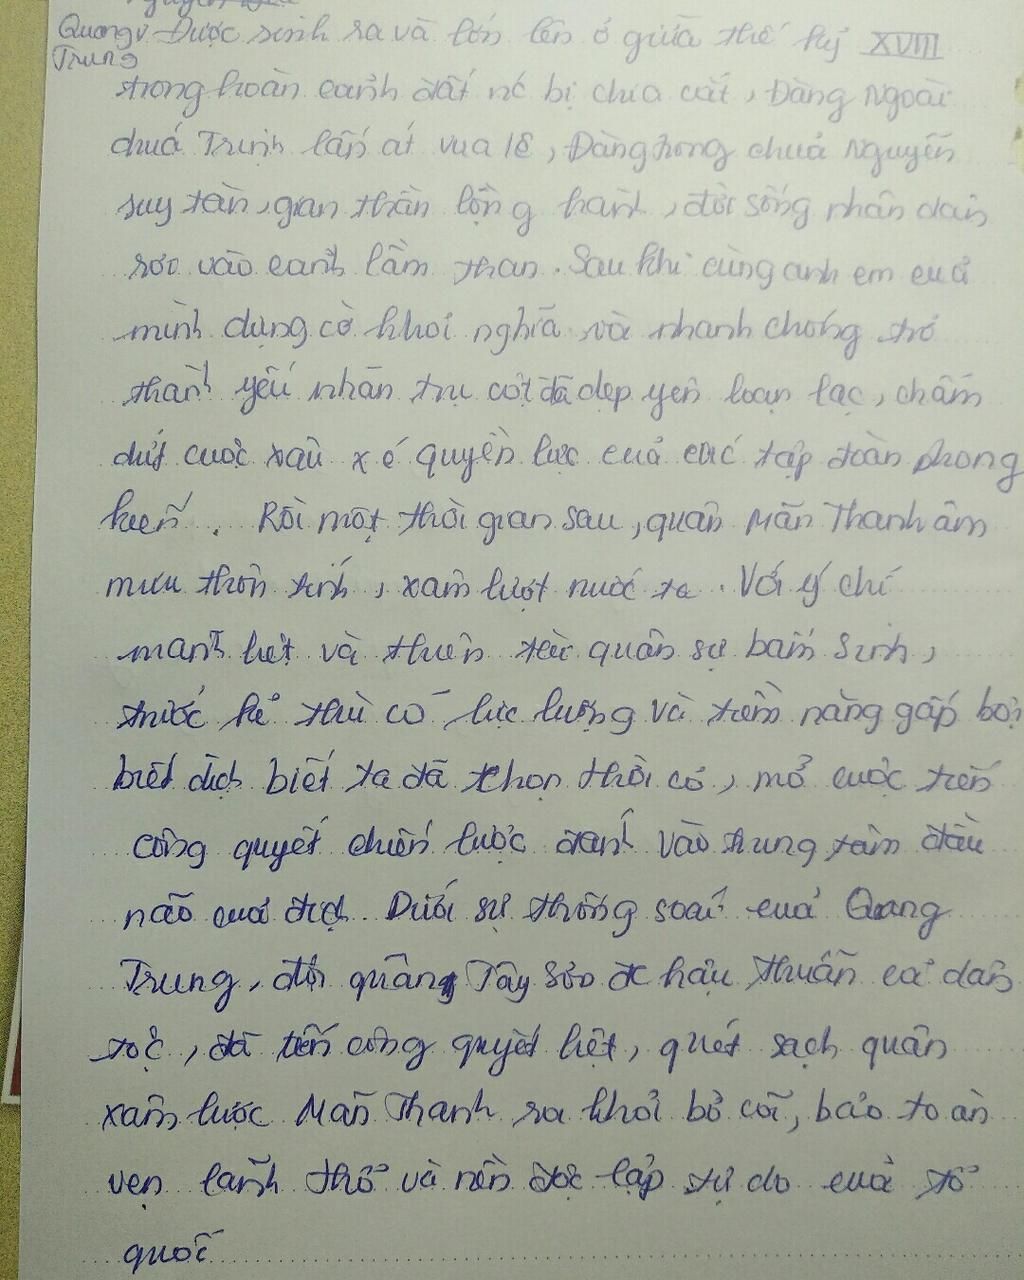 Quang Được sinh ra và lớn lên ở giữa thế kỷ XVIII
Trung
trong hoàn cảnh đất nc bị chia cắt, Đàng Ngoài
chúa Trịnh lấn át vua lê, Đàng trong chuả Nguyễn
suy tàn, gian thần lộng hành, đời sống nhân dân
rơi vào cảnh lầm than. Sau khi cùng anh em cuả
mình dựng cờ khởi nghĩa và nhanh chóng trở
thành yếu nhân trụ cột đã dẹp yên loạn lạc, chấm
dứt cuộc xâu xé quyền lực cuả các tập đoàn phong
kiến. Rồi một thời gian sau, quân Mãn Thanh âm
mưu thôn tính, xâm lượt nước ta. Với ý chí
mãnh liệt và thiên tài quân sự bẩm sinh,
trước kẻ thù có lực lượng và tiềm năng gấp bội
biết địch biết ta đã chọn thời cơ, mở cuộc tiến
công quyết chiến lược đánh vào trung tâm đầu
não cuả địch. Dưới sự thống soái cuả Quang
Trung, đội quân Tây Sơn đc hậu thuẫn cả dân
tộc, đã tiến công quyết liệt, quét sạch quân
xâm lược Mãn Thanh ra khỏi bờ cõi, bảo toàn
vẹn lãnh thổ và nền độc lập tự do cuả tổ
quốc